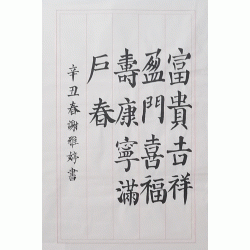 富貴吉祥
盈門喜福
壽康寧滿
戶春
辛丑春謝雅婷書